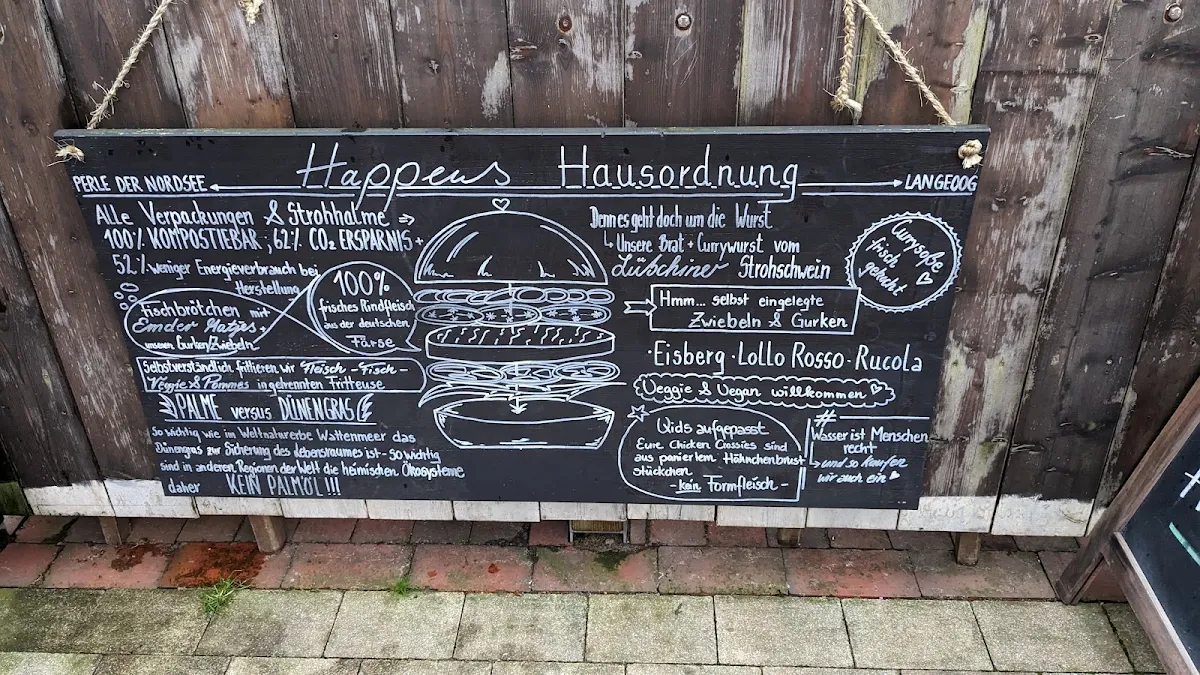 Happens Hausordnung
PERLE DER NORDSEE
LANGEOOG
Alle Verpackungen & Strohhalme
100% KOMPOSTIEBAR, 62% CO₂ ERSPARNIS +
52% weniger Energieverbrauch bei
Herstellung
Fischbrötchen mit
Emder Matjes +
unseren Gurken/Zwiebeln
100%
frisches Rindfleisch
aus der deutschen
Färse
Selbstverständlich frittieren wir Fleisch - Fisch -
Veggie & Pommes in getrennten Fritteuse
PALME versus DÜNENGRAS
So wichtig wie im Weltnaturerbe Wattenmeer das
Dünengras zur Sicherung des Lebensraumes ist - so wichtig
sind in anderen Regionen der Welt die heimischen Ökosysteme
daher KEIN PALMÖL!!!
Denn es geht doch um die Wurst
Unsere Brat + Currywurst vom
Lübchiner Strohschwein
Currysoße
frisch
gekocht
Hmm... selbst eingelegte
Zwiebeln & Gurken
· Eisberg · Lollo Rosso · Rucola
Veggie & Vegan willkommen
Kids aufgepasst
Eure Chicken Crossies sind
aus paniertem Hähnchenbrust
stückchen
- kein Formfleisch -
#
Wasser ist Menschen
recht
und so kaufen
wir auch ein